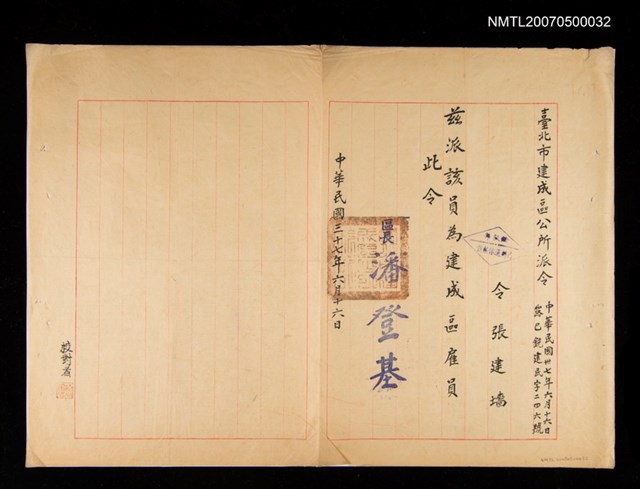 NMTL20070500032
臺北市建成區公所派令
中華民國卅七年六月十六日
建民字二四六號
令張建墻
茲派該員為建成區雇員
此令
區長 潘登基
中華民國三十七年六月十六日
校對者